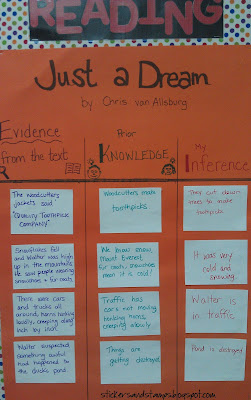 READING
Just a Dream
by Chris van Allsburg
Evidence
from the text
Prior
KNOWLEDGE
My
Inference
The woodcutters
jackets said
"Quality Toothpick
Company."
Woodcutters make
toothpicks
They cut down
trees to make
toothpicks.
Snowflakes fell
and Walter was high
up in the mountains.
He saw people wearing
snowshoes + fur coats
We know snow,
Mount Everest,
fur coats, snowshoes
mean it is cold!
It was very
cold and
snowing.
There were cars
and trucks all
around, horns honking
loudly, creeping along
inch by inch.
Traffic has
cars not moving,
honking horns,
creeping slowly
Walter is
in traffic
Walter suspected
something awful
had happened to
the duck's pond
Things are
getting destroyed
Pond is destroyed
stickersandstamps.blogspot.com